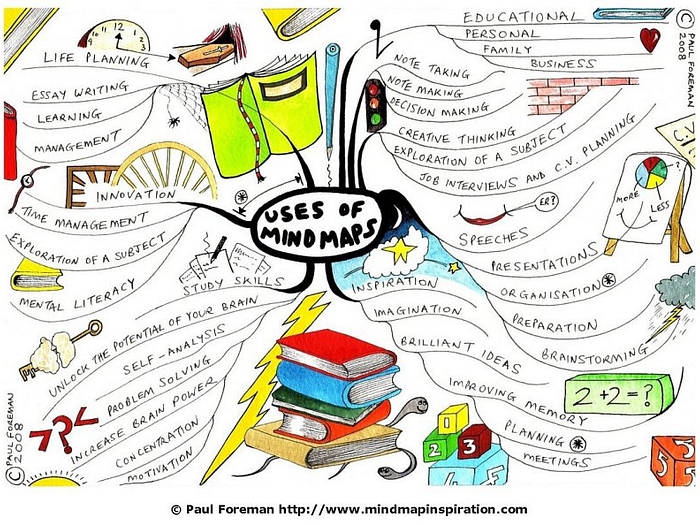 EDUCATIONAL
PERSONAL
FAMILY
BUSINESS
© PAUL FOREMAN 2008
12
3
LIFE PLANNING
ESSAY WRITING
LEARNING
MANAGEMENT
INNOVATION
TIME MANAGEMENT
EXPLORATION OF A SUBJECT
MENTAL LITERACY
STUDY SKILLS
USES OF
MIND MAPS
NOTE TAKING
NOTE MAKING
DECISION MAKING
CREATIVE THINKING
EXPLORATION OF A SUBJECT
JOB INTERVIEWS AND C.V. PLANNING
C.V.
ER?
SPEECHES
?
MORE
LESS
PRESENTATIONS
ORGANISATION
PREPARATION
BRAINSTORMING
INSPIRATION
IMAGINATION
BRILLIANT IDEAS
IMPROVING MEMORY
PLANNING
MEETINGS
2+2=?
1
2
3
4
5
5
UNLOCK THE POTENTIAL OF YOUR BRAIN
SELF-ANALYSIS
PROBLEM SOLVING
INCREASE BRAIN POWER
CONCENTRATION
MOTIVATION
???
© PAUL FOREMAN 2008
© Paul Foreman http://www.mindmapinspiration.com